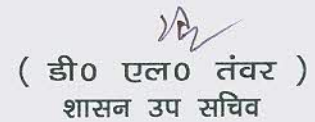 ( डी० एल० तंवर )
शासन उप सचिव